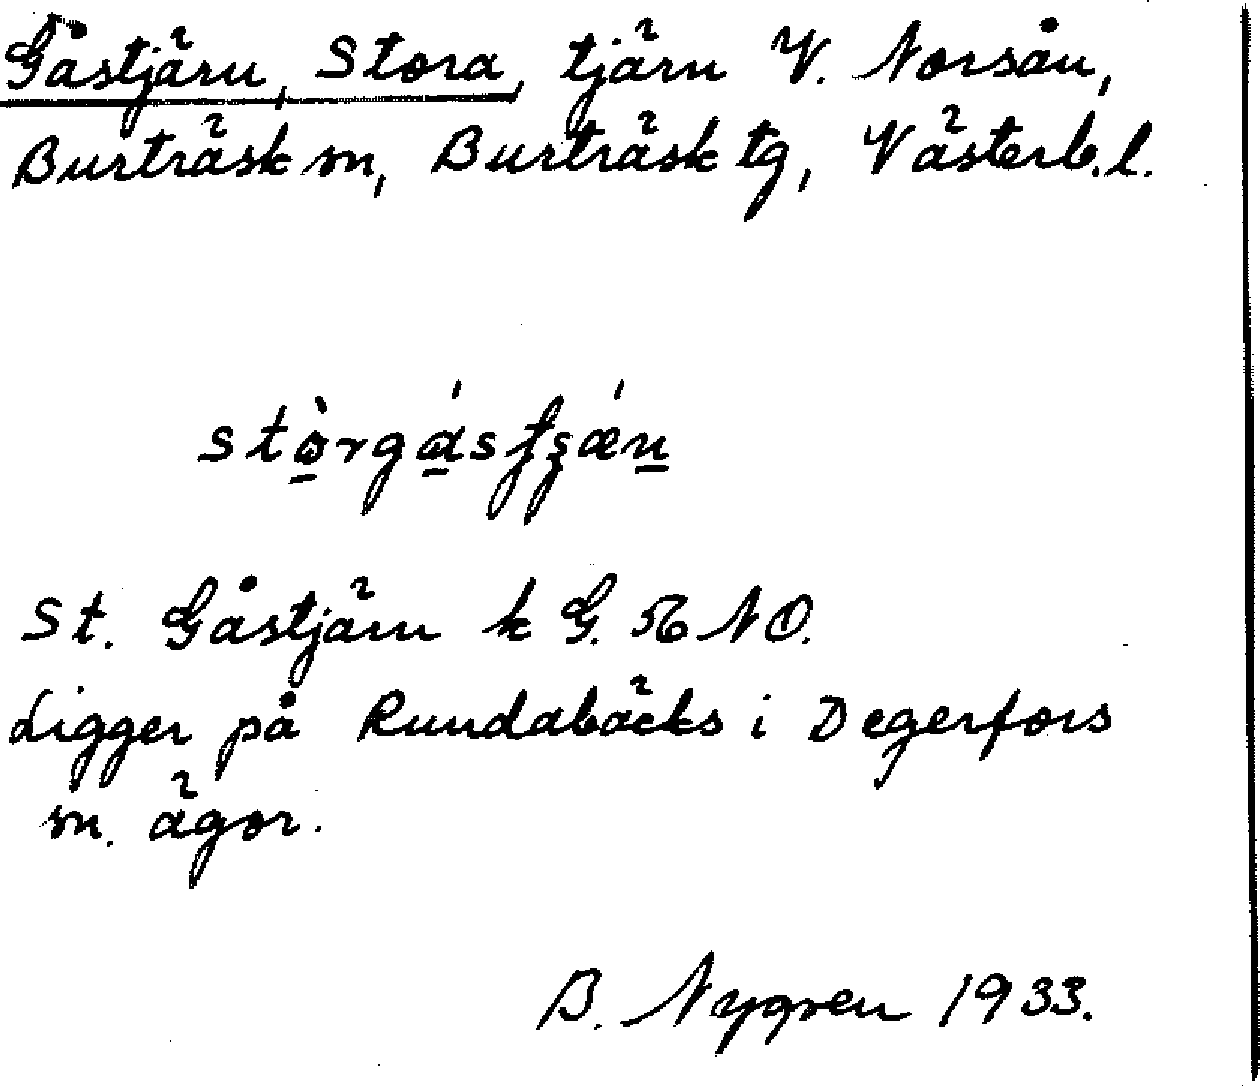 Gåstjärn, Stora, tjärn V. Norsån,
Burträsk sn, Burträsk tg, Västerb. l.
St. Gåstjärn k G. 56 NO.
Ligger på Rundabäcks i Degerfors
sn. ägor.
B. Nygren 1933.